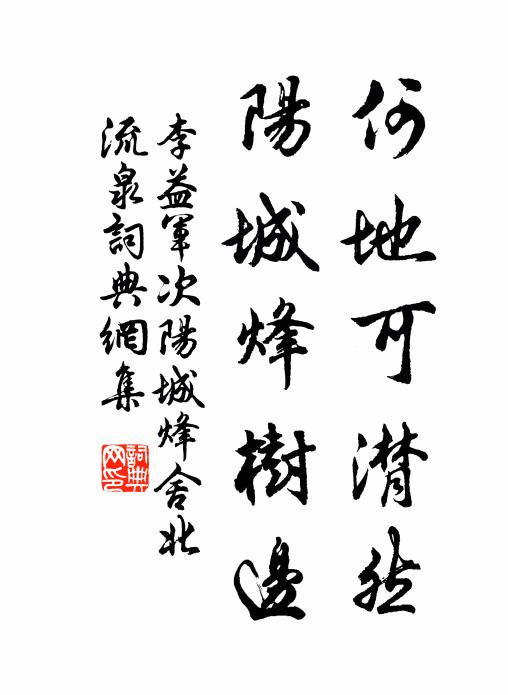 何地可潸然
陽城烽樹邊
李益軍次陽城烽舍北
流泉詞典網集
詞典網印